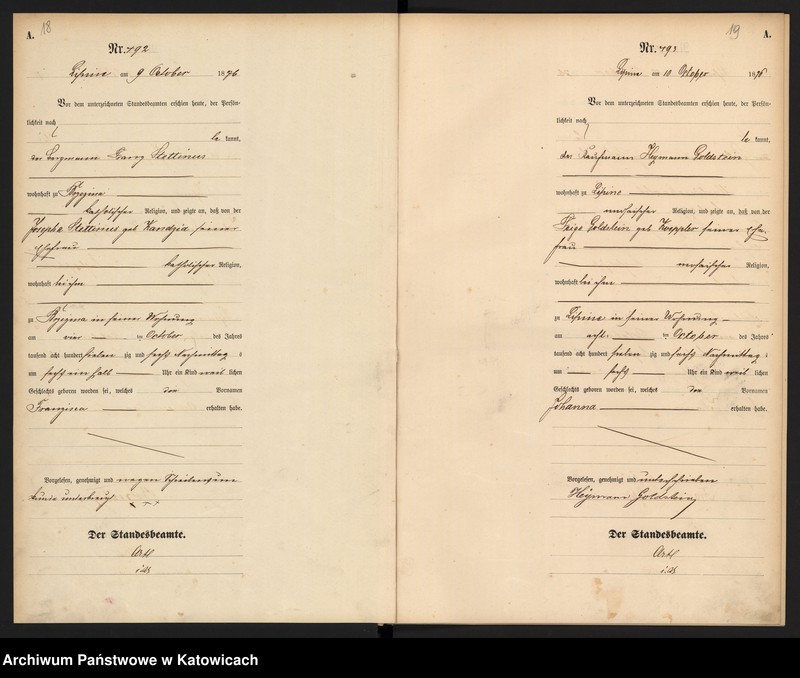 A. 18
Nr. 492
Lipine am 9 October 1876.
Vor dem unterzeichneten Standesbeamten erschien heute, der Persön-
lichkeit nach
be kannt,
der Bergmann Stettinus
wohnhaft zu
katholischer Religion, und zeigte an, daß von der
Josepha Stettinus geb. Kandzia seiner
Ehefrau
katholischer Religion,
wohnhaft bei ihm
zu in seiner Wohnung
am vier ten October des Jahres
tausend acht hundert sieben zig und sechs Nachmittag s
um sechs ein halb Uhr ein Kind weib lichen
Geschlechts geboren worden sei, welches den Vornamen
Franzisca erhalten habe.
Vorgelesen, genehmigt und wegen Schreibensun-
kunde unterkreuzt
+++
Der Standesbeamte.
19 A.
Nr. 493
Lipine am 10 October 1876
Vor dem unterzeichneten Standesbeamten erschien heute, der Persön-
lichkeit nach
be kannt,
der Kaufmann Heymann Goldstein
wohnhaft zu Lipine
mosaischer Religion, und zeigte an, daß von der
Goldstein geb. seiner Ehe-
frau
mosaischer Religion,
wohnhaft bei ihm
zu Lipine in seiner Wohnung
am acht ten October des Jahres
tausend acht hundert sieben zig und sechs Nachmittag s
um sechs Uhr ein Kind weib lichen
Geschlechts geboren worden sei, welches den Vornamen
Johanna erhalten habe.
Vorgelesen, genehmigt und unterschrieben
Heymann Goldstein
Der Standesbeamte.
Archiwum Państwowe w Katowicach